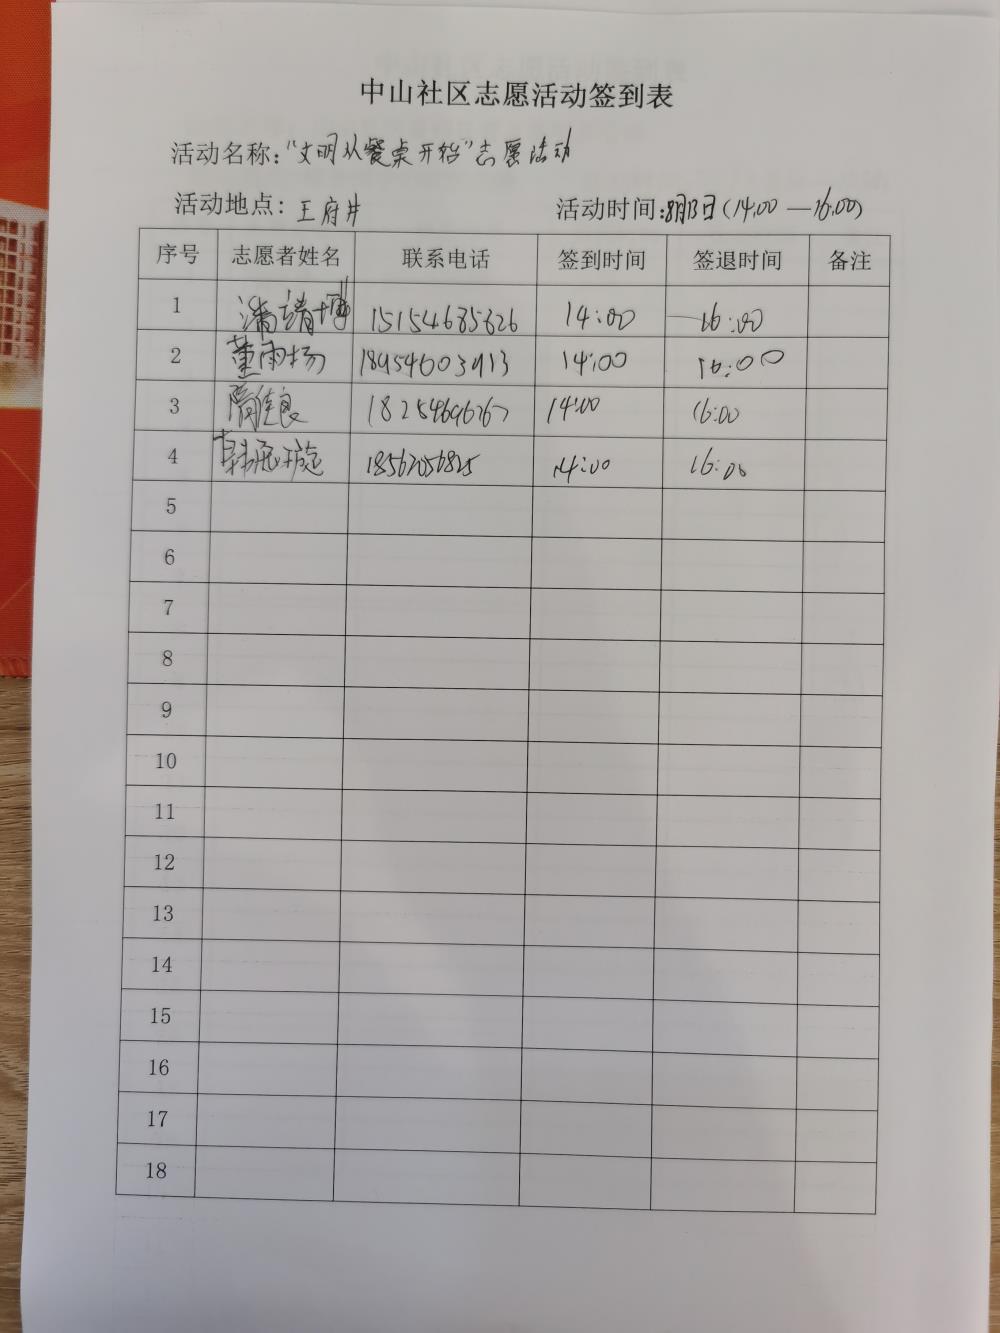 中山社区志愿活动签到表
活动名称:“文明从餐桌开始”志愿活动
活动地点:王府井 活动时间:8月13日(14:00—16:00)
序号 志愿者姓名 联系电话 签到时间 签退时间 备注
1 潘靖博 15154685626 14:00 16:00
2 董雨扬 18954603913 14:00 16:00
3 隋佳良 18254696767 14:00 16:00
4 18562056825 14:00 16:00
5
6
7
8
9
10
11
12
13
14
15
16
17
18